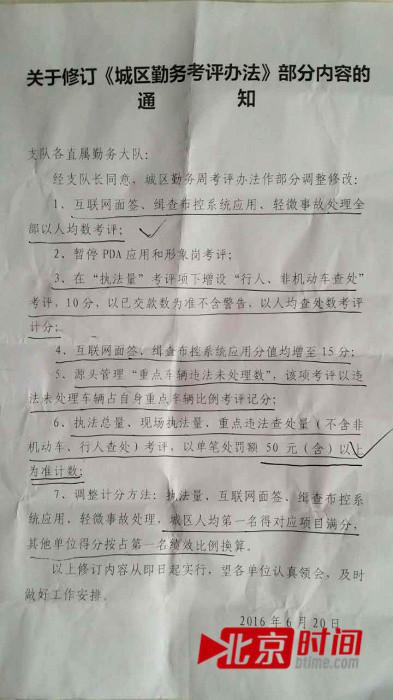 关于修订《城区勤务考评办法》部分内容的
通 知
支队各直属勤务大队：
经支队长同意，城区勤务周考评办法作部分调整修改：
1、互联网面签、缉查布控系统应用、轻微事故处理全
部以人均数考评；
2、暂停 PDA 应用和形象岗考评；
3、在“执法量”考评项下增设“行人、非机动车查处”
考评，10 分，以已交款数为准不含警告，以人均查处数考评
计分；
4、互联网面签、缉查布控系统应用分值均增至 15 分；
5、源头管理“重点车辆违法未处理数”，该项考评以违
法未处理车辆占自身重点车辆比例考评记分；
6、执法总量、现场执法量，重点违法查处量（不含非
机动车、行人查处）考评，以单笔处罚额 50 元（含）以上
为准计数；
7、调整计分方法：执法量，互联网面签、缉查布控系
统应用，轻微事故处理，城区人均第一名得对应项目满分，
其他单位得分按占第一名绩效比例换算。
以上修订内容从即日起实行，望各单位认真领会，及时
做好工作安排。
2016 年 6 月 20 日
北京时间
btime.com